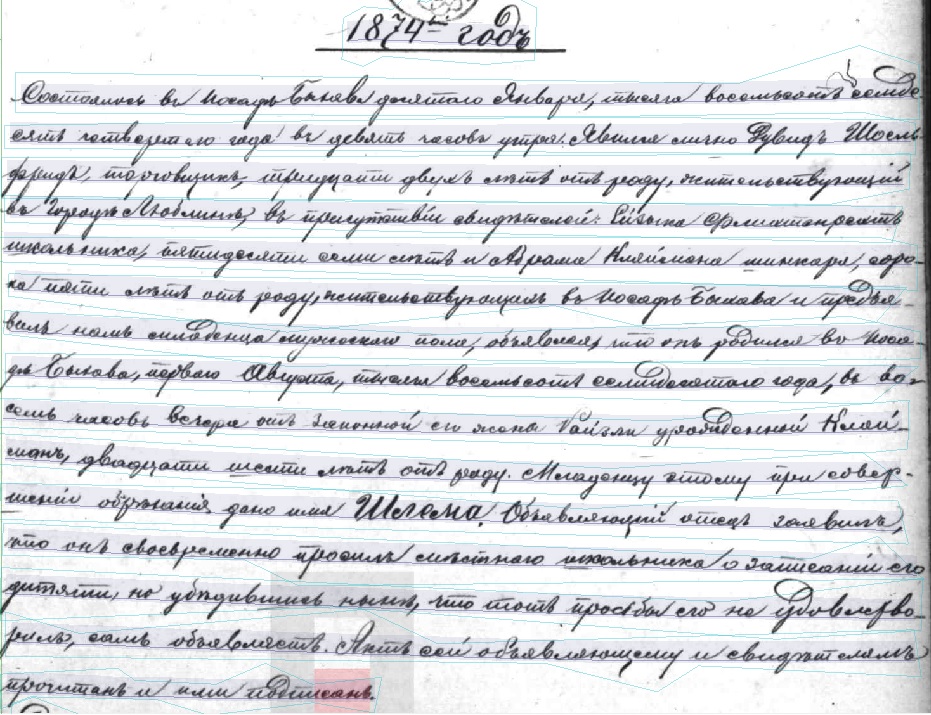 1874 годъ
Состоялось въ Посадѣ Быхава десятаго Января, тысяча восемьсотъ семьде-
сятъ четвертаго года въ девять часовъ утра. Явился лично Дувидъ Шоель
фридъ, торговщикъ, тридцати двухъ лѣтъ отъ роду, жительствующій
въ Городѣ Люблинѣ, въ присутствіи свидѣтелей:
школьника, пятидесяти семи лѣтъ и Абрама Клеймана шинкаря, соро-
ка пяти лѣтъ отъ роду, жительствующихъ въ Посадѣ Быхава и предъя-
вилъ намъ младенца мужескаго пола, объявляя, что онъ родился въ Поса-
дѣ Быхава, перваго Августа, тысяча восемьсотъ семидесятаго года, въ во-
семь часовъ вечера отъ законной его жены Райзли урожденной Клей-
манъ, двадцати шести лѣтъ отъ роду. Младенцу этому при совер-
шеніи обрѣзанія, дано имя Шлема. Объявляющій отецъ заявилъ,
что онъ своевременно просилъ мѣстнаго школьника о записаніи его
дитяти, но убѣдившись нынѣ, что тотъ просьбы его не удовлетво-
рилъ, самъ объявляетъ. Актъ сей объявляющему и свидѣтелямъ
прочитанъ и ими подписанъ.